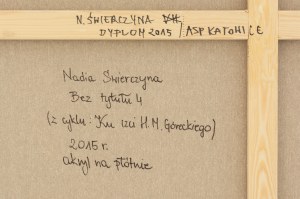 N. ŚWIERCZYNA
DYPLOM 2015 / ASP KATOWICE
Nadia Świerczyna
Bez tytułu 4
(z cyklu: Ku czci H. M. Góreckiego)
2015 r.
akryl na płótnie